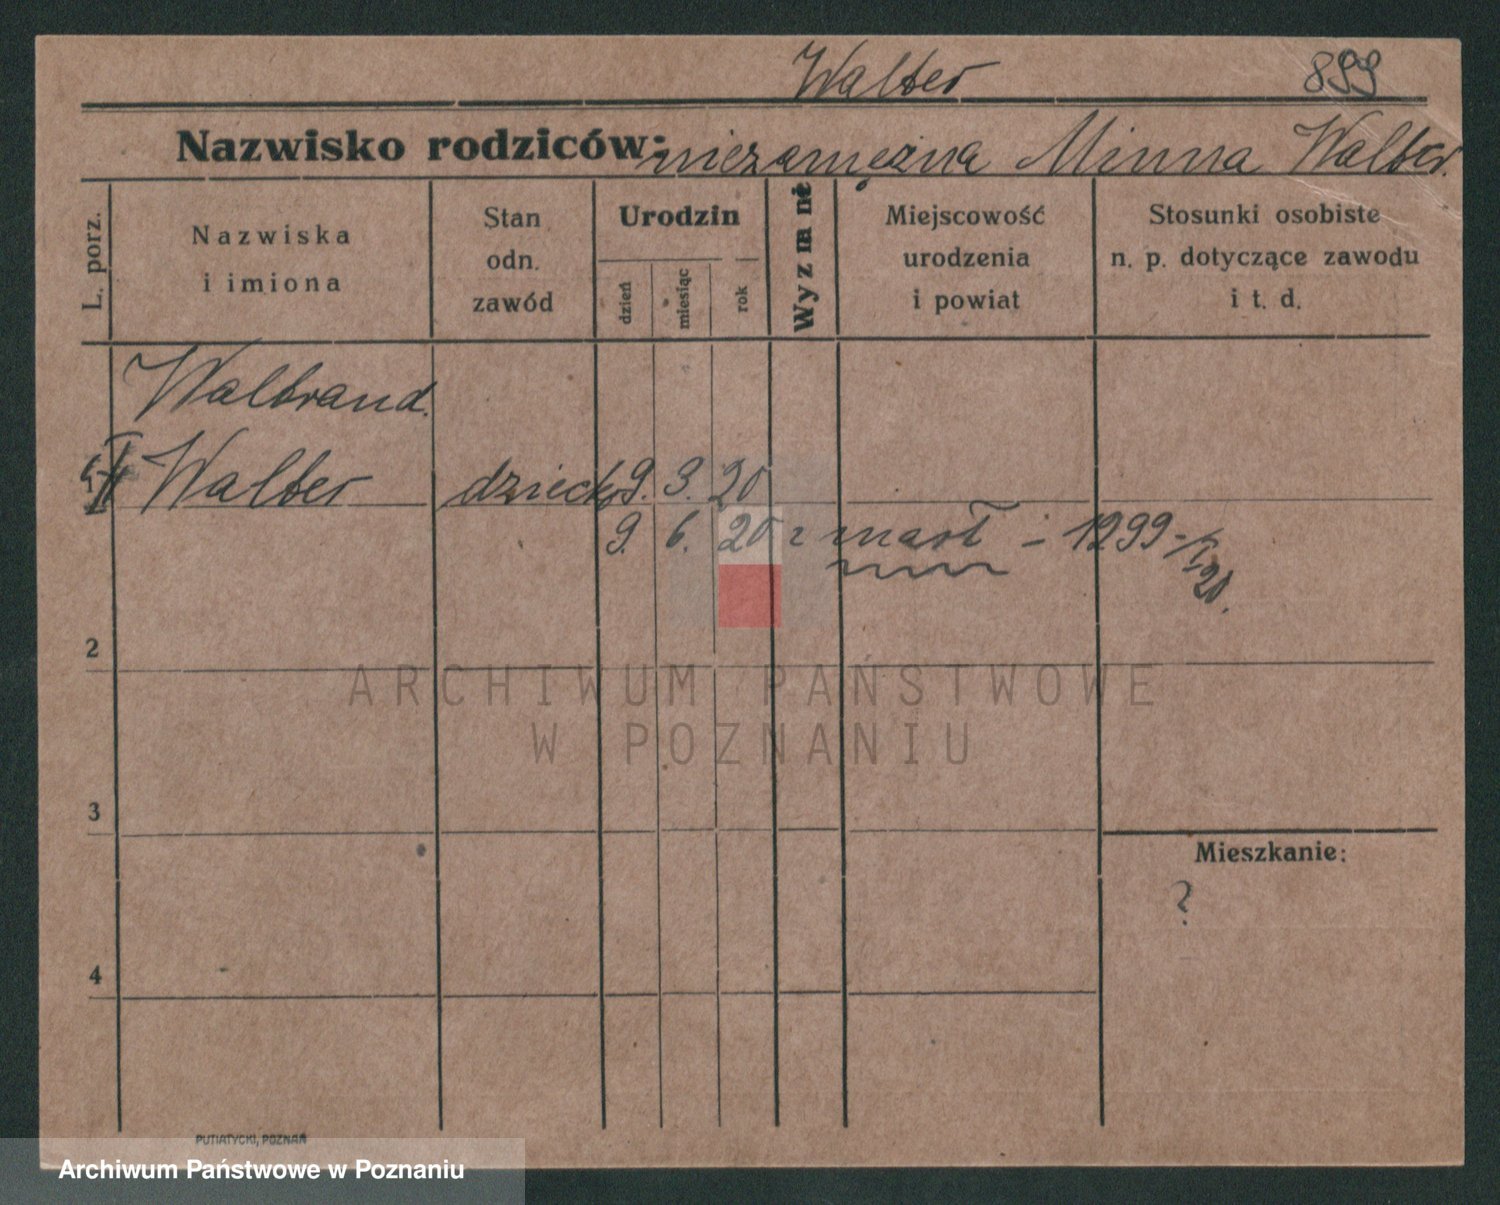 Walter 899
Nazwisko rodziców: niezamężna Minna Walter.
L. porz.
Nazwiska
i imiona
Stan
odn.
zawód
Urodzin
dzień
miesiąc
rok
Wyznanie
Miejscowość
urodzenia
i powiat
Stosunki osobiste
n. p. dotyczące zawodu
i t. d.
Walbrand.
Walter dziecko 9. 3. 20
9. 6. 20 zmarł – 1299
2
3
Mieszkanie:
?
4
PUTIATYCKI, POZNAŃ
ARCHIWUM PAŃSTWOWE
W POZNANIU
Archiwum Państwowe w Poznaniu